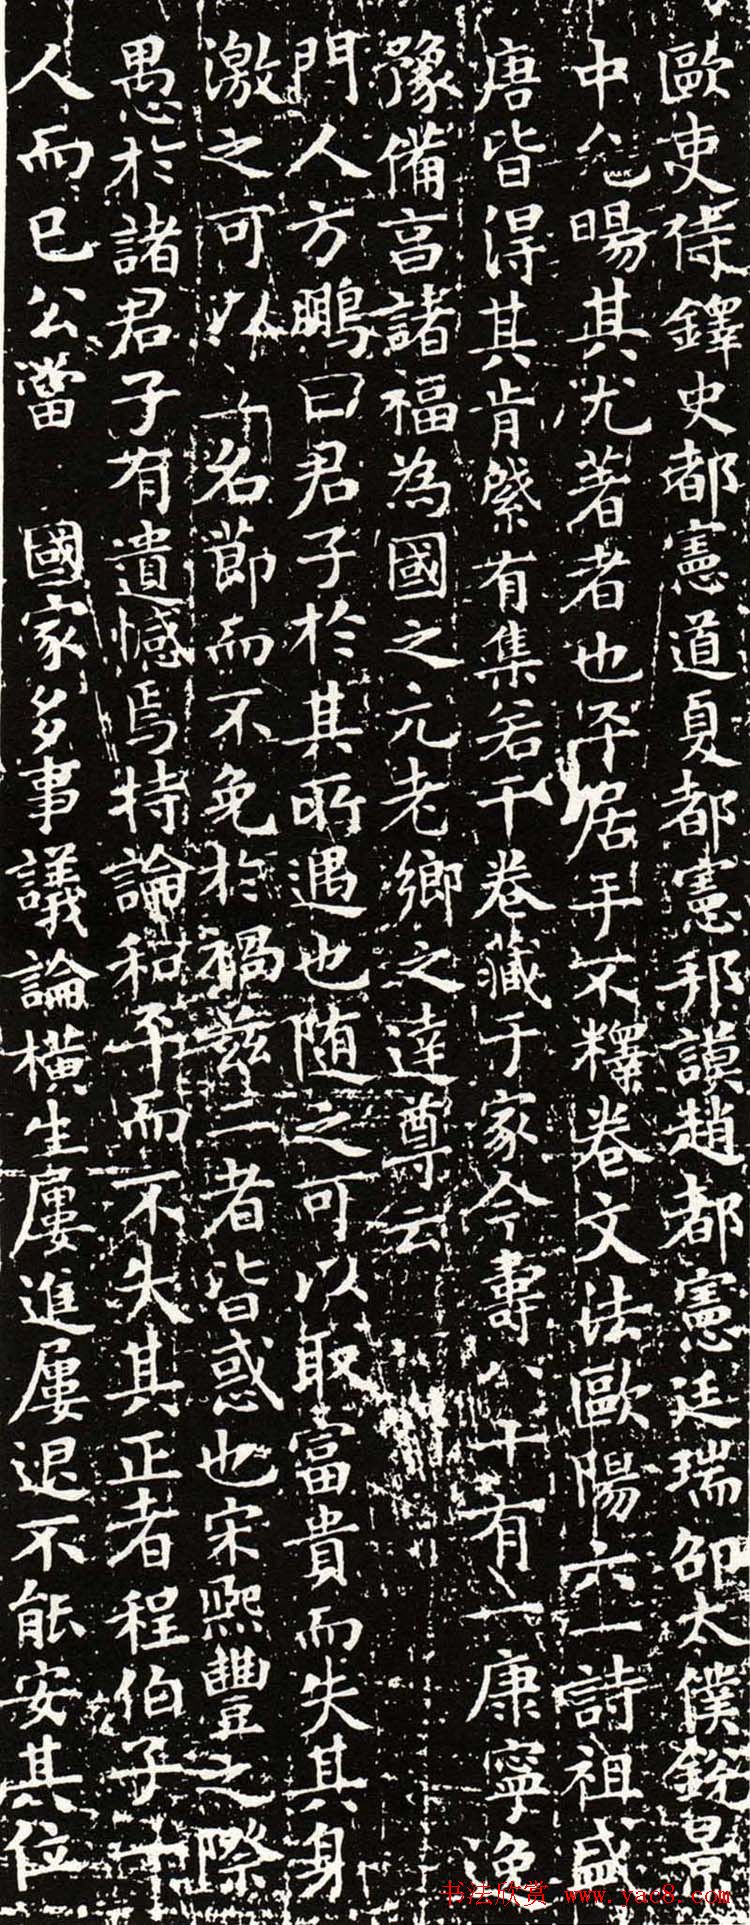 歐吏侍鐸史都憲道夏都憲邦謨趙都憲廷瑞邵太僕銳景
中暘其尤著者也平居手不釋卷文法歐陽六一詩祖盛
唐皆得其肯綮有集若干卷藏于家今壽八十有一康寧逸
豫備亯諸福為國之元老鄉之達尊云
門人方鵬曰君子於其所遇也随之可以取富貴而失其身
激之可以名節而不免於禍兹二者皆惑也宋熙豐之際
愚於諸君子有遺憾焉持論和平而不失其正者程伯子一
人而已公當 國家多事議論橫生屢進屢退不能安其位
书法欣赏 www.yac8.com